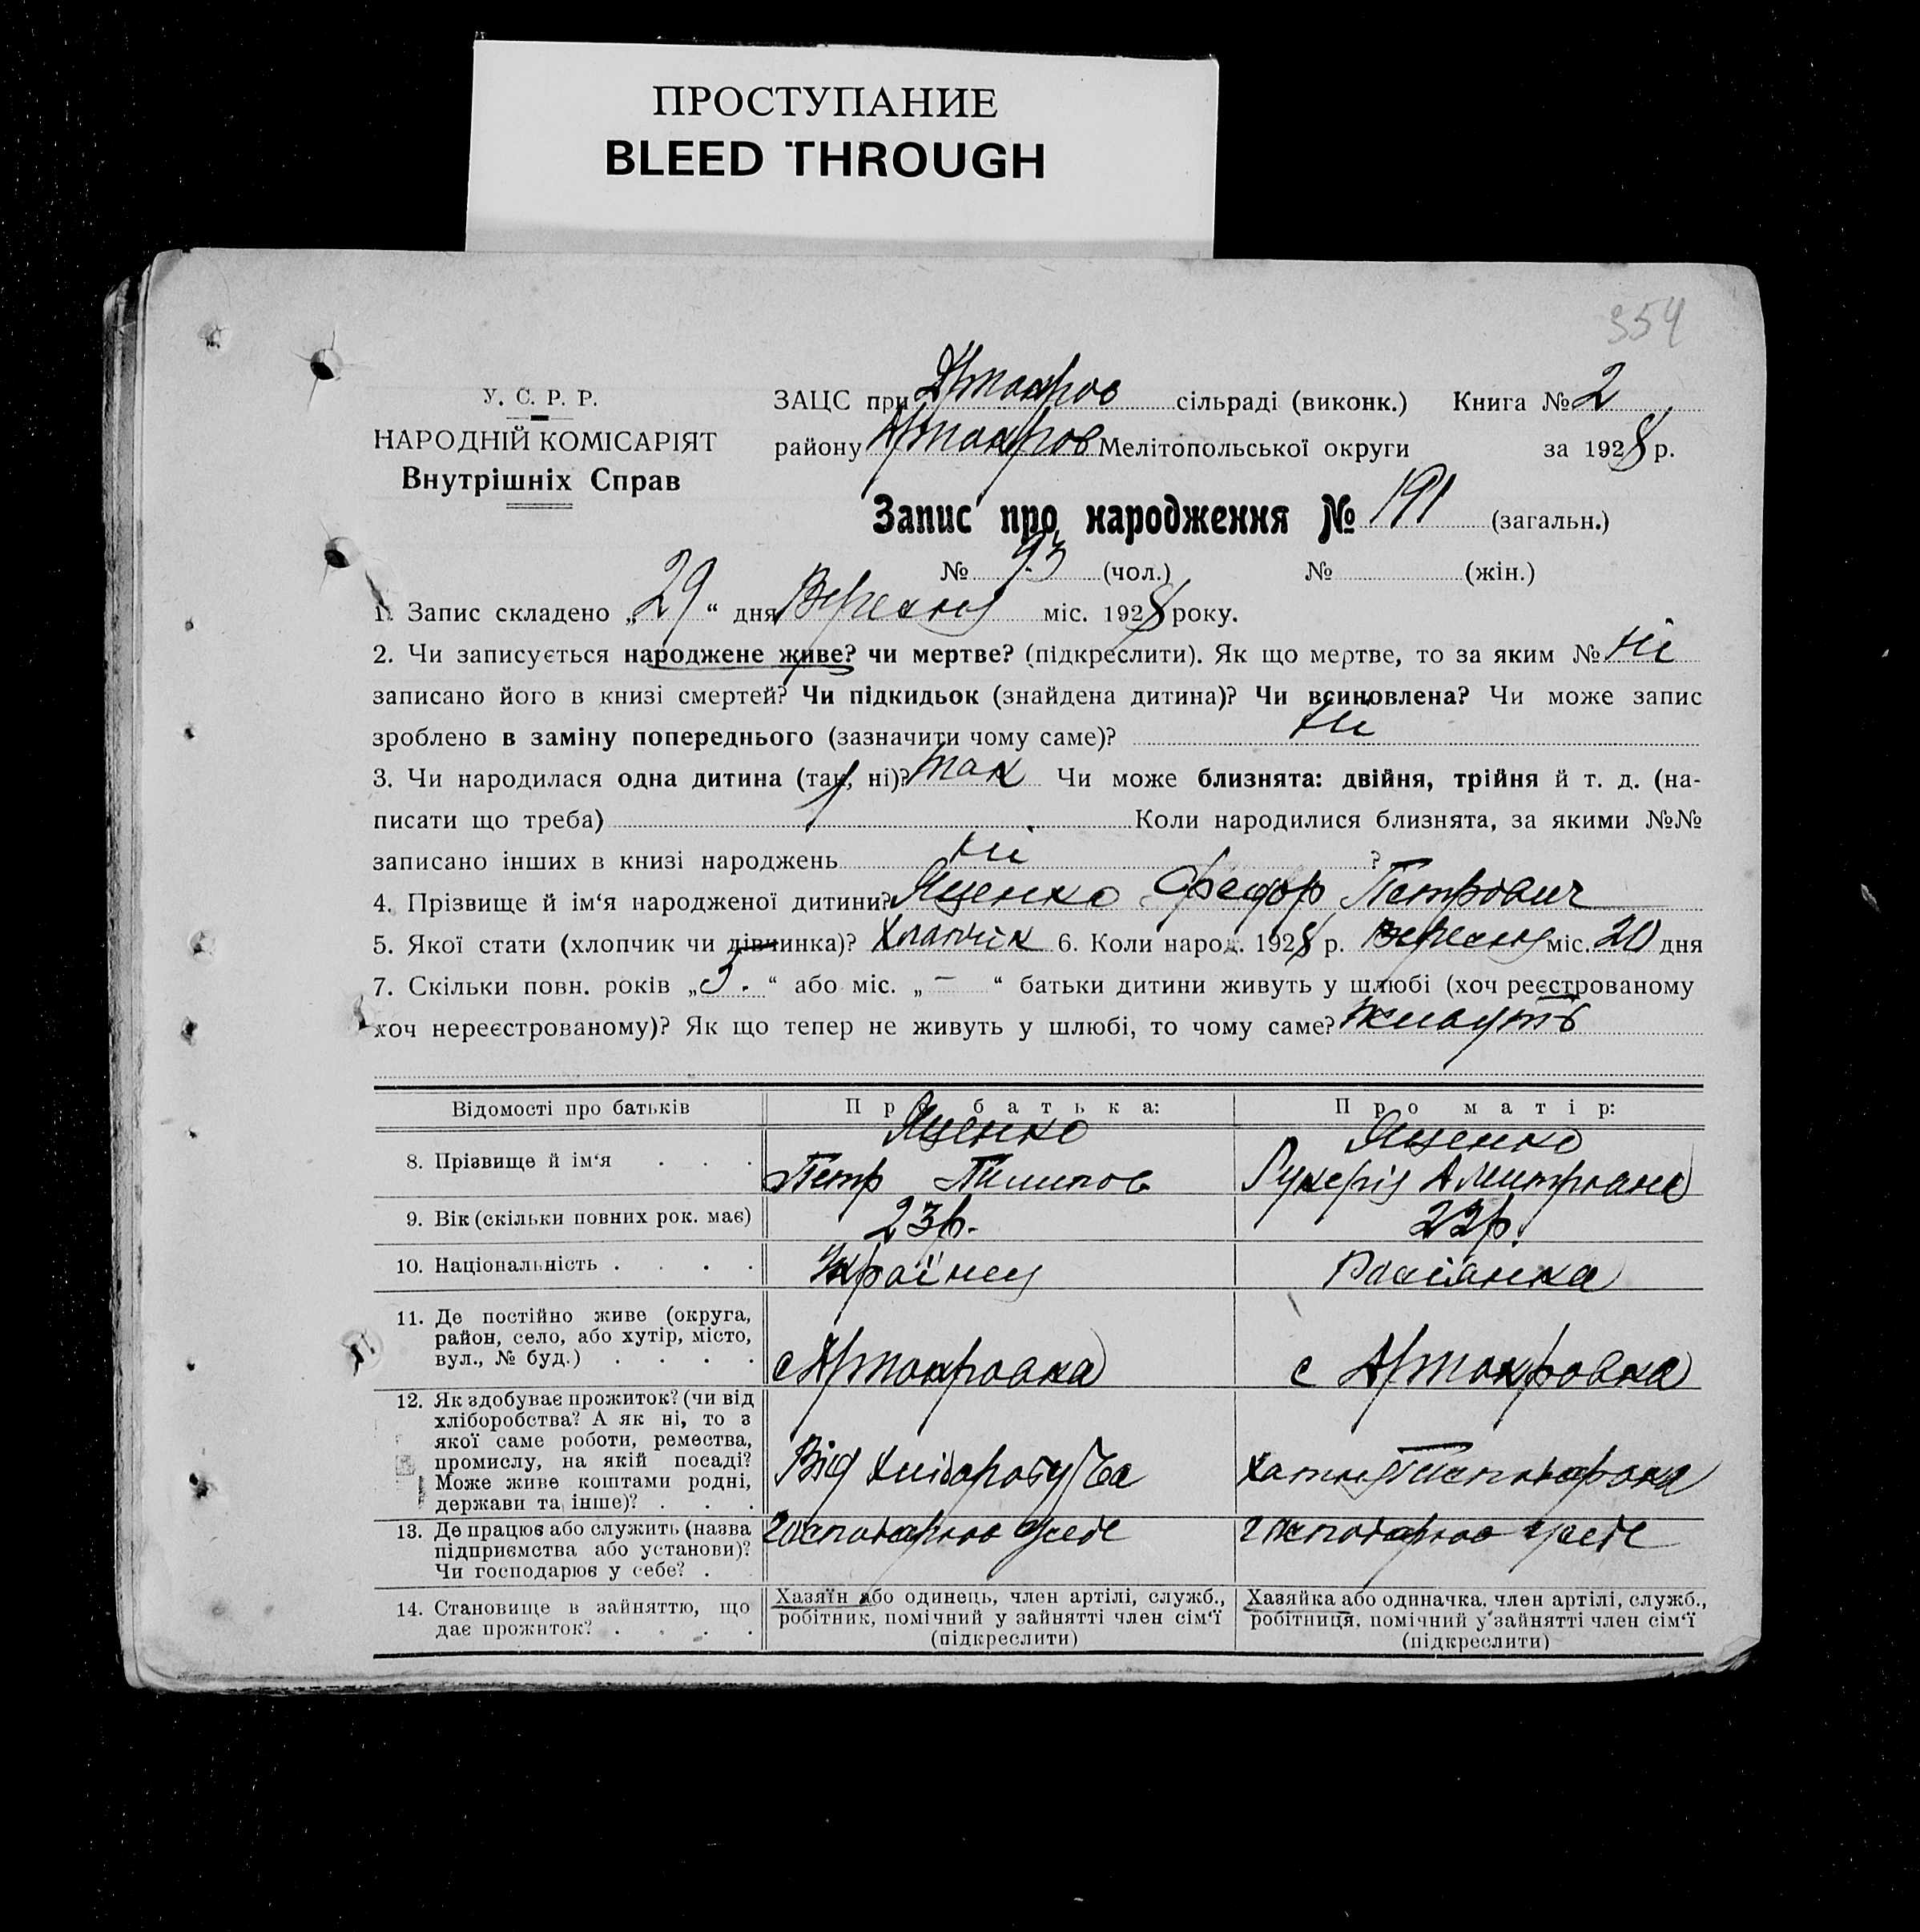 ПРОСТУПАНИЕ
BLEED THROUGH
354
У. С. Р. Р.
НАРОДНІЙ КОМІСАРІЯТ
Внутрішніх Справ
ЗАЦС при сільраді (виконк.) Книга № 2
району Мелітопольської округи за 1928 р.
Запис про народження № 191 (загальн.)
№ 93 (чол.) № (жін.)
1. Запис складено „29“ дня Вересня міс. 1928 року.
2. Чи записується народжене живе? чи мертве? (підкреслити). Як що мертве, то за яким № ні
записано його в книзі смертей? Чи підкидьок (знайдена дитина)? Чи всиновлена? Чи може запис
зроблено в заміну попереднього (зазначити чому саме)? ні
3. Чи народилася одна дитина (так, ні)? так Чи може близнята: двійня, трійня й т. д. (на-
писати що треба) Коли народилися близнята, за якими №№
записано інших в книзі народжень ні ?
4. Прізвище й ім‘я народженої дитини? Яценко Федор Петрович
5. Якої стати (хлопчик чи дівчинка)? Хлопчік 6. Коли народ. 1928 р. Вересня міс. 20 дня
7. Скільки повн. років „3.“ або міс. „—“ батьки дитини живуть у шлюбі (хоч реєстрованому
хоч нереєстрованому)? Як що тепер не живуть у шлюбі, то чому саме? живуть
Відомості про батьків Про батька: Про матір:
8. Прізвище й ім‘я . . . Яценко Петр Пилипов Яценко
9. Вік (скільки повних рок. має) 23р. 22р.
10. Національність . . . . Українец Росіянка
11. Де постійно живе (округа,
район, село, або хутір, місто,
вул., № буд.) . . . .
12. Як здобуває прожиток? (чи від
хліборобства? А як ні, то з
якої саме роботи, ремества,
промислу, на якій посаді?
Може живе коштами родні,
держави та інше)? . . . Від хліборобства
13. Де працює або служить (назва
підприємства або установи)?
Чи господарює у себе? . господарює у себе господарює у себе
14. Становище в зайняттю, що
дає прожиток? . . . .
Хазяїн або одинець, член артілі, служб.,
робітник, помічний у зайнятті член сім‘ї
(підкреслити)
Хазяйка або одиначка, член артілі, служб.,
робітниця, помічний у зайнятті член сім‘ї
(підкреслити)